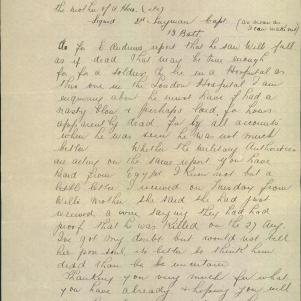 the mother of a Hero (etc)
Signed Lt Luzman Capt. (as near as
13 Batt I can make out)
As for E Andrews report that he saw Will fall
as if dead That may be true enough
for for a soldier as he in a Hospital as
this one in the London Hospital I am
enquiring about he must have had a
nasty blow & perhaps laid for hours
apparently dead for by all accounts
when he was seen he was not much
better Whether the military Authorities
are acting on the same report you have
had from Egypt I know not but a
letter I received on Tuesday from
Will's Mother she said she had just
received a wire saying they had had
proof that he was killed on the 27 Aug
I've got my doubt but would not tell
her poor soul its better to think him
dead than be in uncertain
Thanking you very much for what
you have already & hoping you will